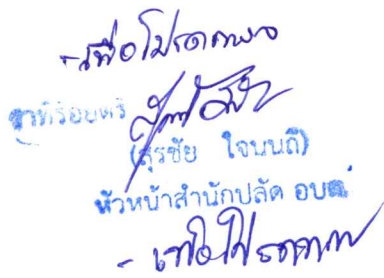 - เพื่อโปรดทราบ
ว่าที่ร้อยตรี
(สุรชัย ใจนนถี)
หัวหน้าสำนักปลัด อบต.
- เพื่อโปรดทราบ